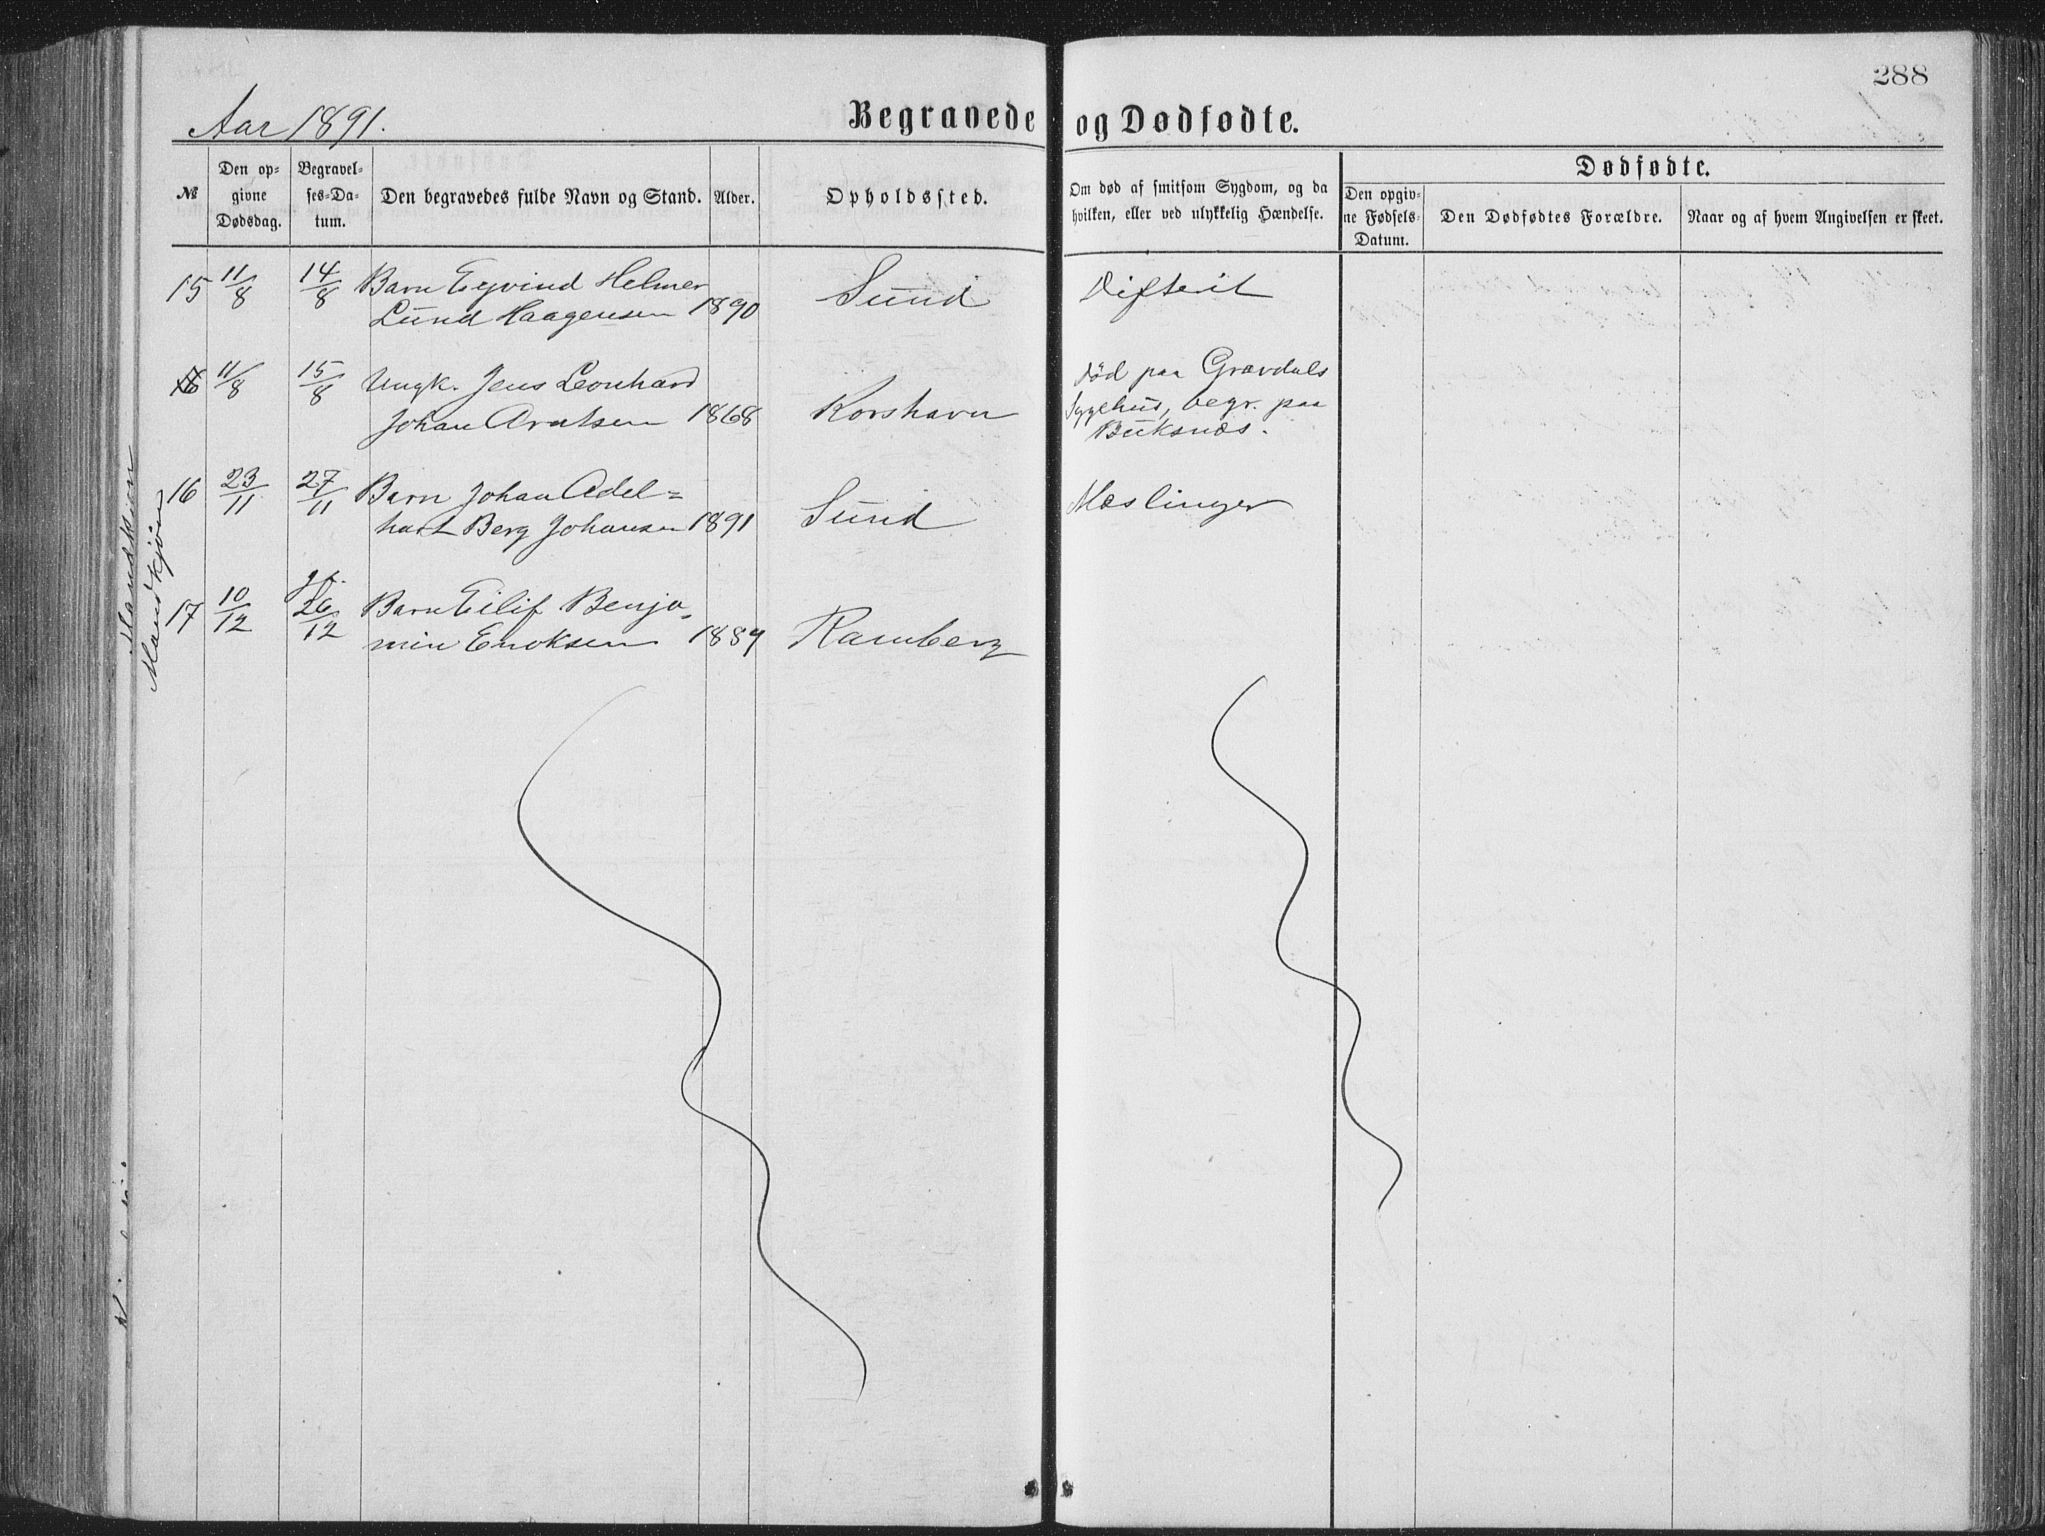 288
Aar 1891.
Begravede og Dødfødte.
№
Den opgivne Dødsdag.
Begravelses-Datum.
Den begravedes fulde Navn og Stand.
Alder.
Opholdssted.
Om død af smitsom Sygdom, og da hvilken, eller ved ulykkelig Hændelse.
Dødfødte.
Den opgivne Fødsels-Datum.
Den Dødfødtes Forældre.
Naar og af hvem Angivelsen er skeet.
Mandkjøn
15 11/8 14/8 Barn Ejvind Helmer
Lund Haagensen 1890 Sund Difterit
11/8 15/8 Ungk. Jens Leonhard
Johan Arntsen 1868 Korshavn
Død paa Gravdals
Sygehus, begr. paa
Buksnæs.
16 23/11 27/11 Barn Johan Adel=
hart Berg Johansen 1891 Sund Mæslinger
17 10/12 26/12 Barn Eilif Benja-
min Enoksen 1889 Ramberg